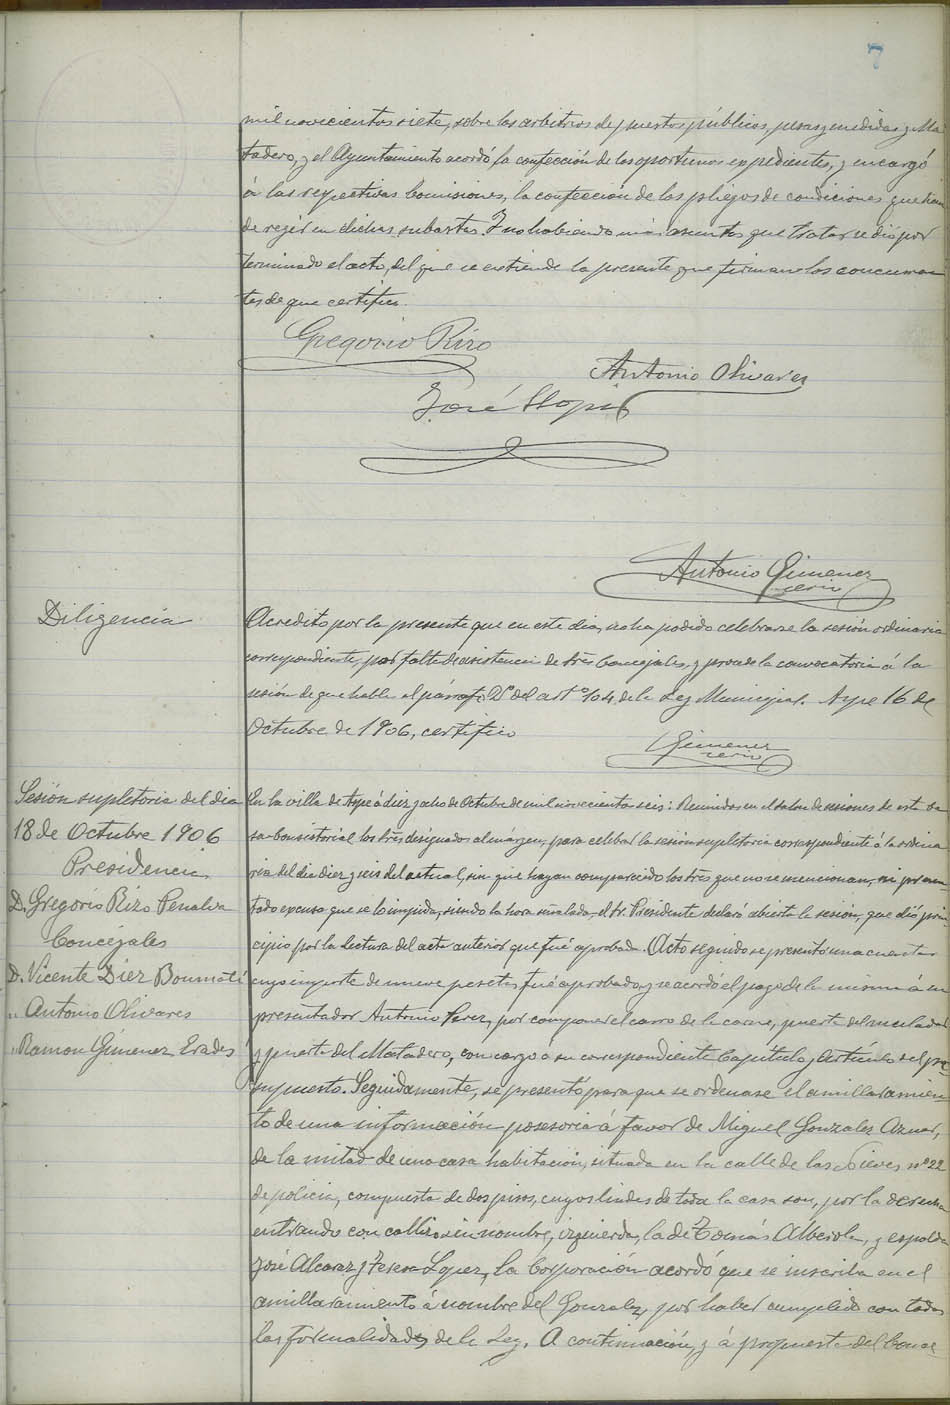 7
mil novecientos siete, sobre los arbitrios de puestos públicos, pesas y medidas y Ma
tadero, y el Ayuntamiento acordó la confección de los oportunos expedientes, y encargó
á las respectivas Comisiones, la confección de los pliegos de condiciones que han
de regir en dichas subastas. Y no habiendo más asuntos que tratar se dió por
terminado el acto, del que se extiende la presente que firman los concurren
tes de que certifico.
Gregorio Rizo
Antonio Olivares
José Llopis
Antonio Gimenez
Diligencia
Acredito por la presente que en este dia, no ha podido celebrarse la sesión ordinaria
correspondiente, por falta de asistencia de Sres Concejales, y procede la convocatoria á la
sesión de que habla el párrafo 2º del artº 104 de la Ley Municipal. Aspe 16 de
Octubre de 1906, certifico
Gimenez
Sesión supletoria del dia
18 de Octubre 1906
Presidencia
D. Gregorio Rizo Penalva
Concejales
D. Vicente Díez Boumati
„ Antonio Olivares
„ Ramon Gimenez Erades
En la villa de Aspe á diez y ocho de Octubre de mil novecientos seis: Reunidos en el salon de sesiones de esta Ca
sa Consistorial los Sres designados al márgen, para celebrar la sesion supletoria correspondiente á la ordina
ria del dia diez y seis del actual, sin que hayan comparecido los Sres que no se mencionan, ni presen
tado excusa que se lo impida, siendo la hora señalada, el Sr. Presidente declaró abierta la sesión, que dió prin
cipio por la lectura del acta anterior que fué aprobada. Acto seguido se presentó una cuenta
cuyo importe de nueve pesetas, fué aprobada y se acordó el pago de la misma á su
presentador Antonio Perez, por componer el carro de la carne, puerta del muladar
y puerta del Matadero, con cargo a su correspondiente Capítulo y Artículo del pre
supuesto. Seguidamente, se presentó para que se ordenase el amillaramien-
to de una información posesoria á favor de Miguel Gonzalez Aznar,
de la mitad de una casa habitación, situada en la calle de las Nieves nº 22
de policia, compuesta de dos pisos, cuyos lindes de toda la casa son, por la derecha
entrando con calliso sin nombre, izquierda, la de Tomás Alberola, y espalda
José Alcaraz y Teresa Lopez, la Corporación acordó que se inscriba en el
amillaramiento á nombre del Gonzalez, por haber cumplido con todas
las formalidades de la Ley. A continuación, y á propuesta del Conce-